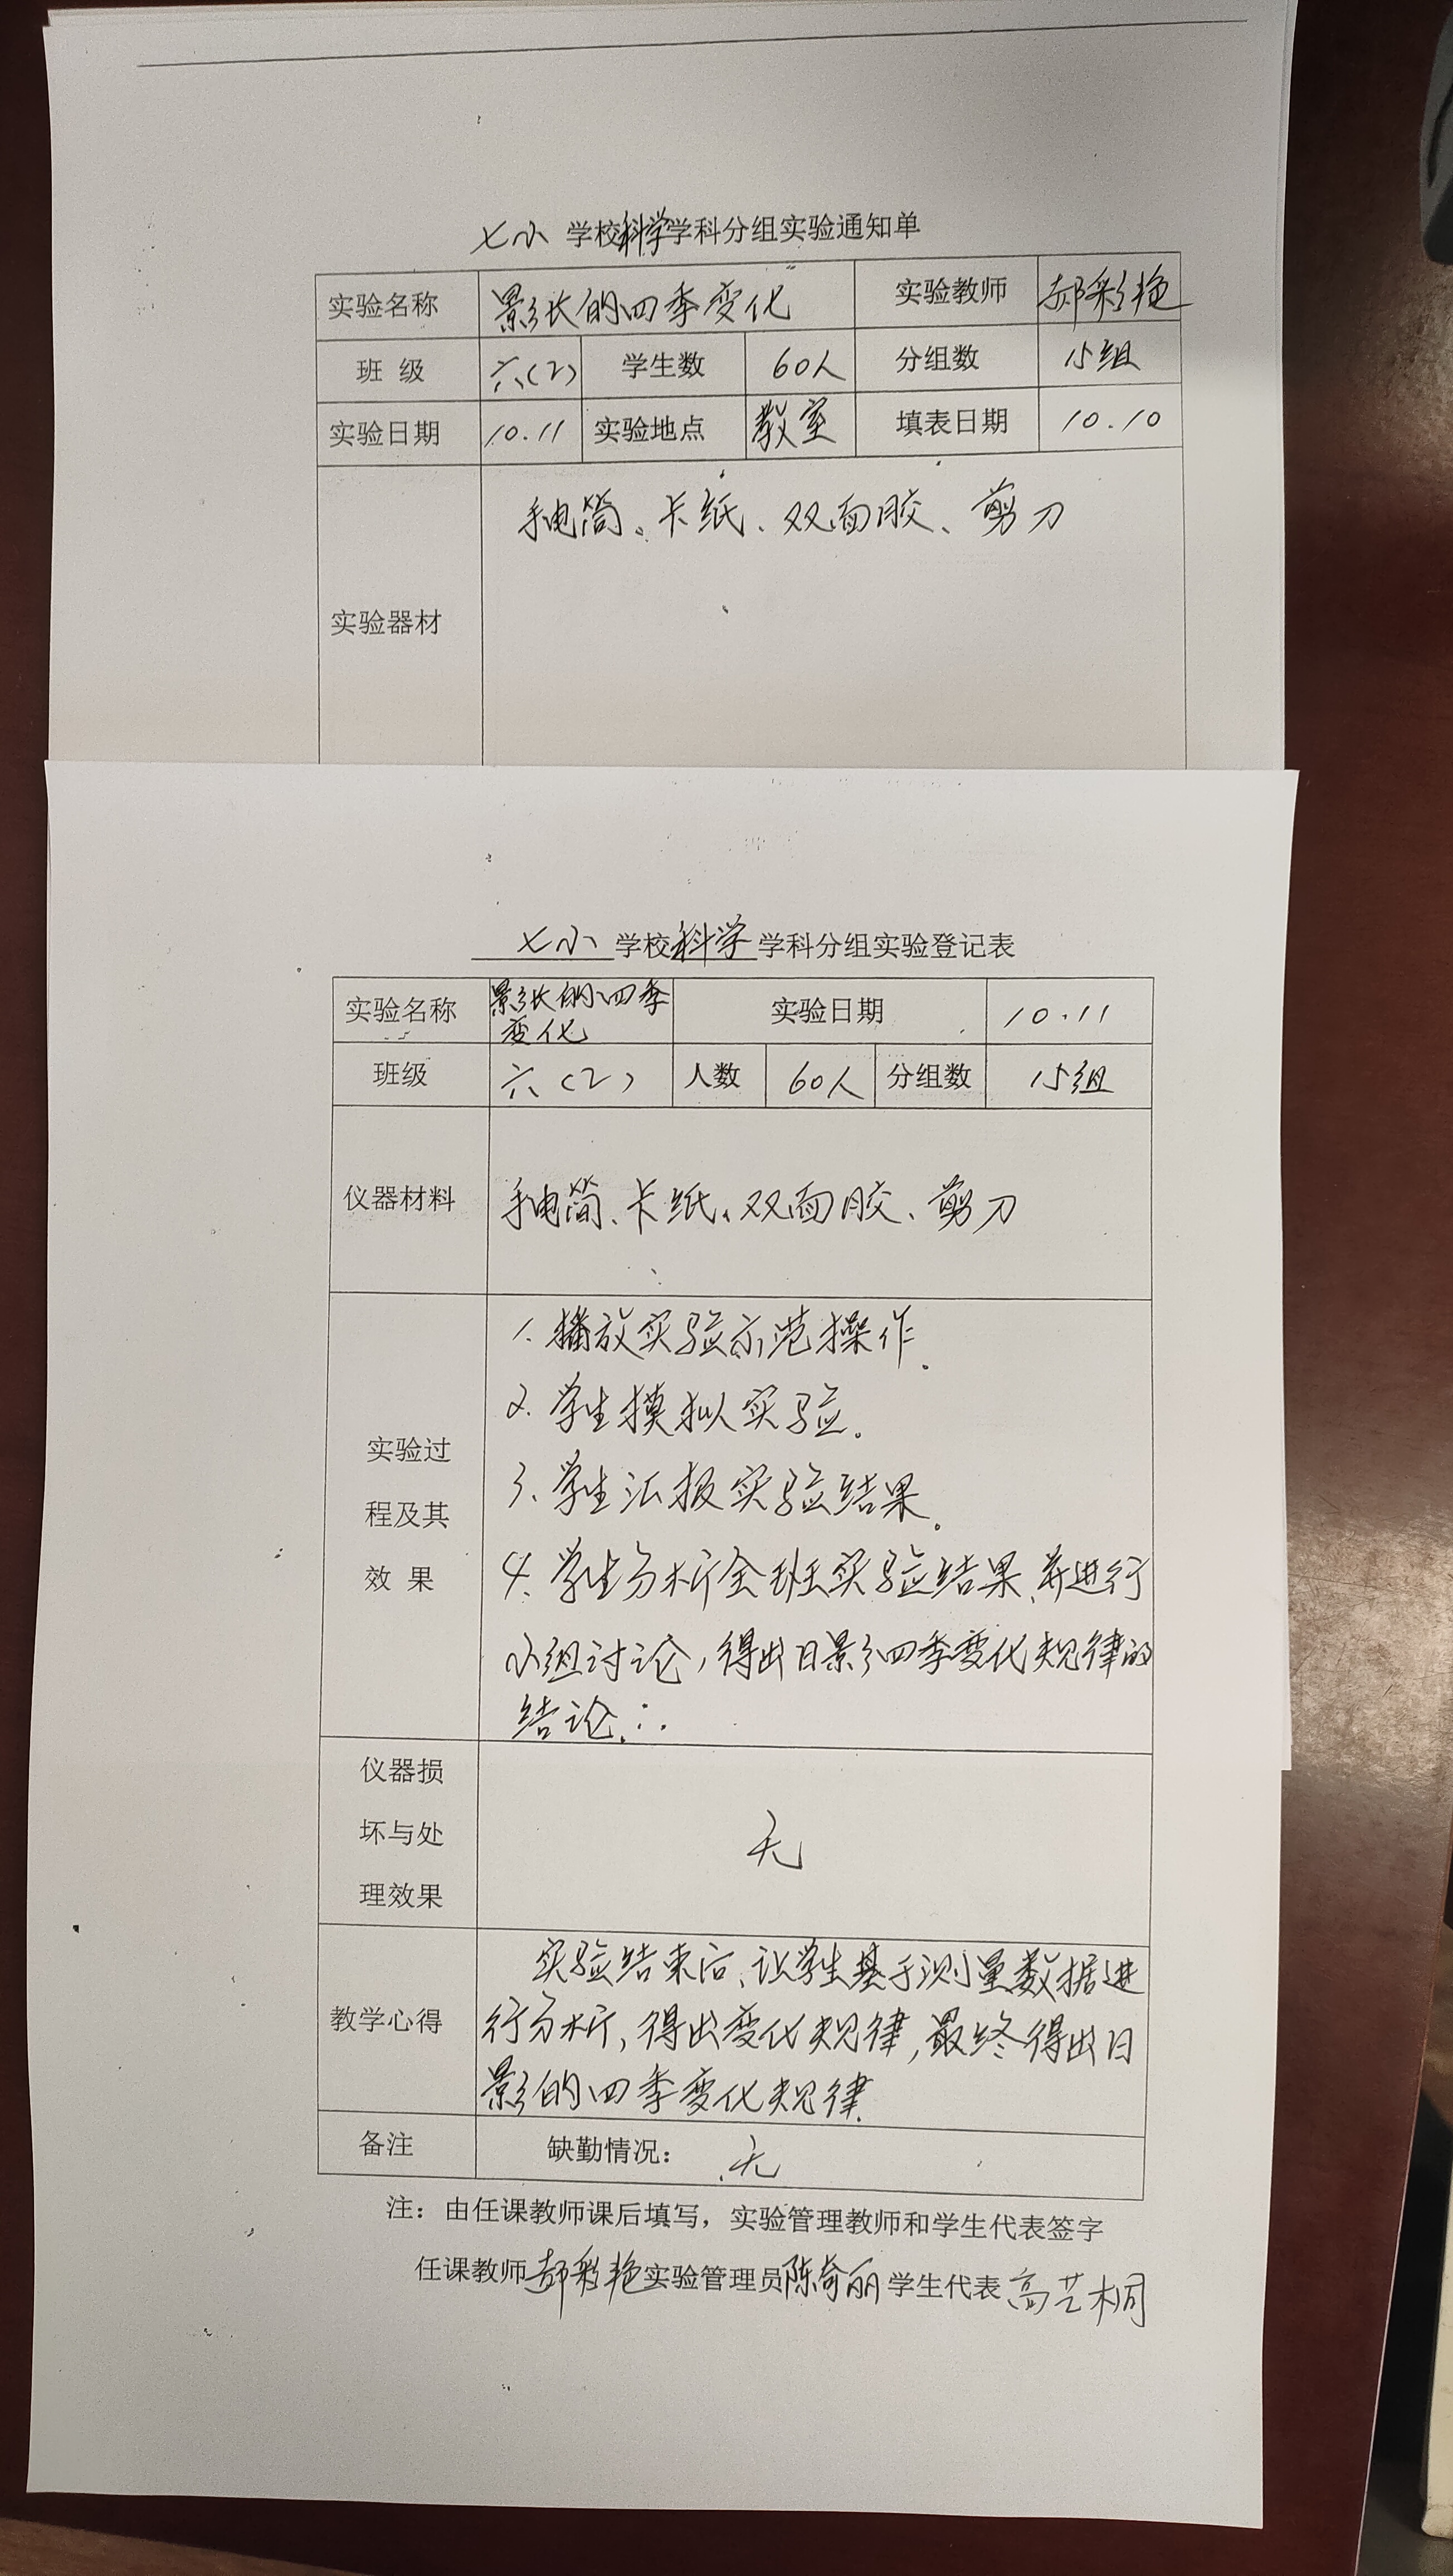 七小 学校科学学科分组实验通知单
实验名称 影长的四季变化 实验教师 郝彩艳
班 级 六(2) 学生数 60人 分组数 15组
实验日期 10.11 实验地点 教室 填表日期 10.10
手电筒、卡纸、双面胶、剪刀
实验器材
七小 学校科学学科分组实验登记表
实验名称 影长的四季变化 实验日期 10.11
班级 六(2) 人数 60人 分组数 15组
仪器材料 手电筒、卡纸、双面胶、剪刀
1. 播放实验示范操作.
2. 学生模拟实验.
3. 学生汇报实验结果.
4. 学生分析全班实验结果,并进行
小组讨论,得出日影四季变化规律的
结论.
实验过
程及其
效 果
仪器损
坏与处
理效果
无
实验结束后,让学生基于测量数据进
教学心得 行分析,得出变化规律,最终得出日
影的四季变化规律.
备注 缺勤情况: 无
注:由任课教师课后填写,实验管理教师和学生代表签字
任课教师郝彩艳实验管理员陈奇丽学生代表高艺桐